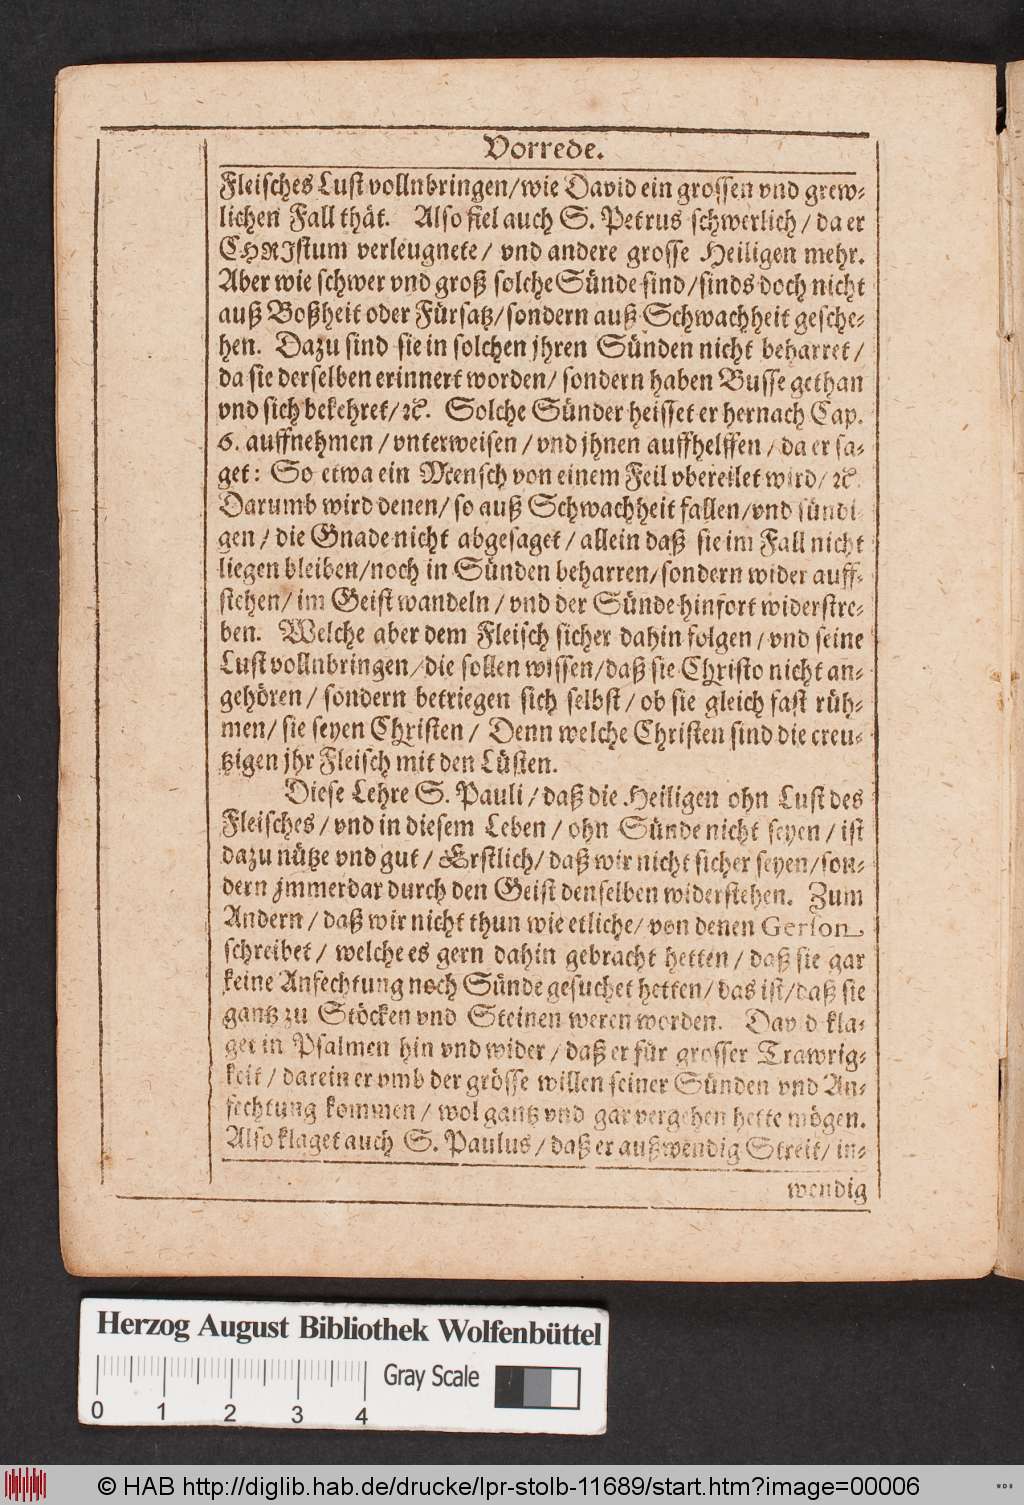 Vorrede.
Fleisches Lust vollnbringen/wie David ein grossen vnd grew-
lichen Fall thät. Also fiel auch S. Petrus schwerlich/ da er
CHRIstum verleugnete/ vnd andere grosse Heiligen mehr.
Aber wie schwer vnd groß solche Sünde sind/sinds doch nicht
auß Boßheit oder Fürsatz/sondern auß Schwachheit gesche-
hen. Dazu sind sie in solchen jhren Sünden nicht beharret/
da sie derselben erinnert worden/ sondern haben Busse gethan
vnd sich bekehret/ꝛc. Solche Sünder heisset er hernach Cap.
6. auffnehmen/ vnterweisen/ vnd jhnen auffhelffen/ da er sa-
get: So etwa ein Mensch von einem Feil vbereilet wird/ ꝛc.
Darumb wird denen/ so auß Schwachheit fallen/vnd sündi-
gen/ die Gnade nicht abgesaget/ allein daß sie im Fall nicht
liegen bleiben/noch in Sünden beharren/sondern wider auff-
stehen/ im Geist wandeln/ vnd der Sünde hinfort widerstre-
ben. Welche aber dem Fleisch sicher dahin folgen/ vnd seine
Lust vollnbringen/die sollen wissen/daß sie Christo nicht an-
gehören/ sondern betriegen sich selbst/ ob sie gleich fast rüh-
men/ sie seyen Christen/ Denn welche Christen sind die creu-
tzigen jhr Fleisch mit den Lüsten.
Diese Lehre S. Pauli/ daß die Heiligen ohn Lust des
Fleisches/ vnd in diesem Leben/ ohn Sünde nicht seyen/ ist
dazu nütze vnd gut/ Erstlich/ daß wir nicht sicher seyen/son-
dern jmmerdar durch den Geist denselben widerstehen. Zum
Andern/ daß wir nicht thun wie etliche/ von denen Gerson
schreibet/ welche es gern dahin gebracht hetten/ daß sie gar
keine Anfechtung noch Sünde gesuchet hetten/ das ist/daß sie
gantz zu Stöcken vnd Steinen weren worden. Dav d kla-
get in Psalmen hin vnd wider/ daß er für grosser Trawrig-
keit/ darein er vmb der grösse willen seiner Sünden vnd An-
fechtung kommen/ wol gantz vnd gar vergehen hette mögen.
Also klaget auch S. Paulus/ daß er außwendig Streit/ in-
wendig
Herzog August Bibliothek Wolfenbüttel
Gray Scale
0 1 2 3 4
© HAB http://diglib.hab.de/drucke/lpr-stolb-11689/start.htm?image=00006